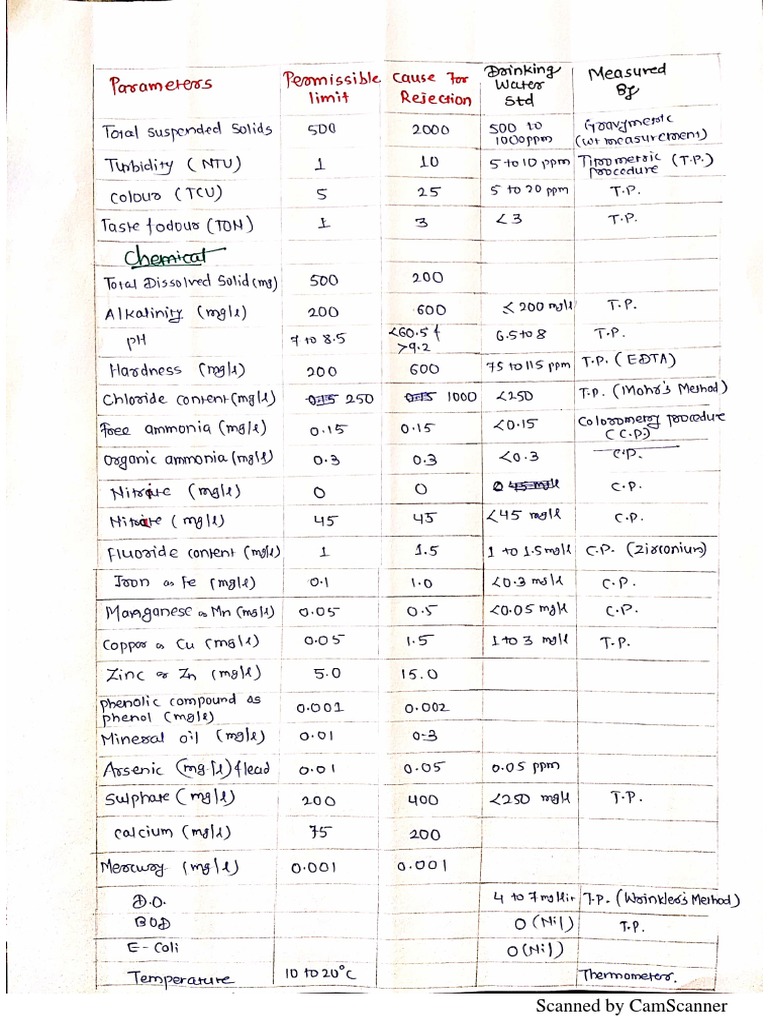 Parameters Permissible limit Cause For Rejection Drinking Water Std Measured By
Total Suspended Solids 500 2000 500 to 1000ppm Gravymetric (wt measurement)
Turbidity (NTU) 1 10 5 to 10 ppm Titrometric (T.P.) procedure
Colour (TCU) 5 25 5 to 20 ppm T.P.
Taste & odour (TON) 1 3 <3 T.P.
Chemical
Total Dissolved Solid (mg) 500 200
Alkalinity (mg/l) 200 600 < 200 mg/l T.P.
pH 7 to 8.5 <60.5 & >9.2 6.5 to 8 T.P.
Hardness (mg/l) 200 600 75 to 115 ppm T.P. (EDTA)
Chloride content (mg/l) 0.15 250 0.15 1000 <250 T.P. (Mohr's Method)
Free ammonia (mg/l) 0.15 0.15 <0.15 Colorometry procedure (C.P.)
Organic ammonia (mg/l) 0.3 0.3 <0.3 C.P.
Nitrite (mg/l) 0 0 0 45 mg/l C.P.
Nitrate (mg/l) 45 45 <45 mg/l C.P.
Fluoride content (mg/l) 1 1.5 1 to 1.5 mg/l C.P. (Zirconium)
Iron as Fe (mg/l) 0.1 1.0 <0.3 mg/l C.P.
Manganese as Mn (mg/l) 0.05 0.5 <0.05 mg/l C.P.
Copper as Cu (mg/l) 0.05 1.5 1 to 3 mg/l T.P.
Zinc as Zn (mg/l) 5.0 15.0
phenolic compound as phenol (mg/l) 0.001 0.002
Mineral oil (mg/l) 0.01 0.3
Arsenic (mg/l) & lead 0.01 0.05 0.05 ppm
Sulphate (mg/l) 200 400 <250 mg/l T.P.
calcium (mg/l) 75 200
Mercury (mg/l) 0.001 0.001
D.O. 4 to 7 mg/litr T.P. (Wrinkler's Method)
BOD 0 (Nil) T.P.
E-Coli 0 (Nil)
Temperature 10 to 20°C Thermometer.
Scanned by CamScanner